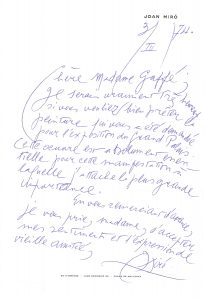 JOAN MIRÓ
3/III 74.
Chère Madame Gaffé,
Je serais vraiment très heureux
si vous vouliez bien prêter la
peinture qui vous a été demandée
pour l'exposition du Grand Palais
Cette œuvre est absolument essen-
tielle pour cette manifestation à
laquelle j'attache la plus grande
importance.
En vous remerciant d'avance,
je vous prie, madame, d'accepter
mes sentiments et l'expression de
vieille amitié,
Miró